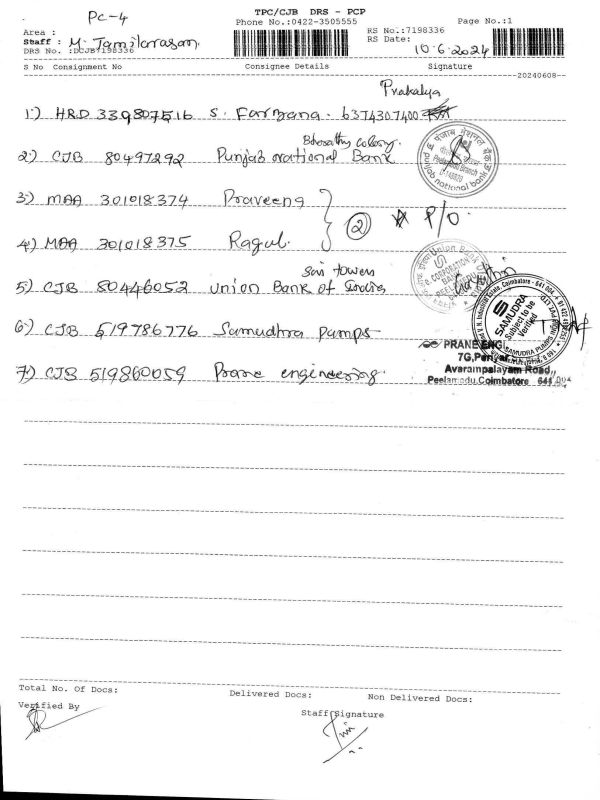 PC-4
TPC/CJB DRS - PCP
Phone No.:0422-3505555
Page No.:1
Area :
Staff : M. Tamilarasan.
DRS No. :DCJB7198336
RS No.:7198336
RS Date:
10.6.2024
S No Consignment No Consignee Details Signature
20240608
Prakalya
1.) HRD 339807516 S. Farzana. 6374307400
Bharathy colony.
2.) CJB 80497292 Punjab national Bank
पंजाब नैशनल बैंक
punjab national bank
3.) MAA 301018374 Praveena
② P/O.
4.) MAA 301018375 Ragul.
Union Bank
Sai towers
5.) CJB 80446052 Union Bank of India
6.) CJB 519786776 Samudhra Pumps
SAMUDRA
Subject to be
Verified
SAMUDRA PUMPS
Coimbatore - 641 004
7.) CJB 519860059 Prane engineering.
PRANE ENGI
7G,
Avarampalayam Road,
Peelamedu,Coimbatore 641 004
Total No. Of Docs:
Delivered Docs:
Non Delivered Docs:
Verified By
Staff Signature